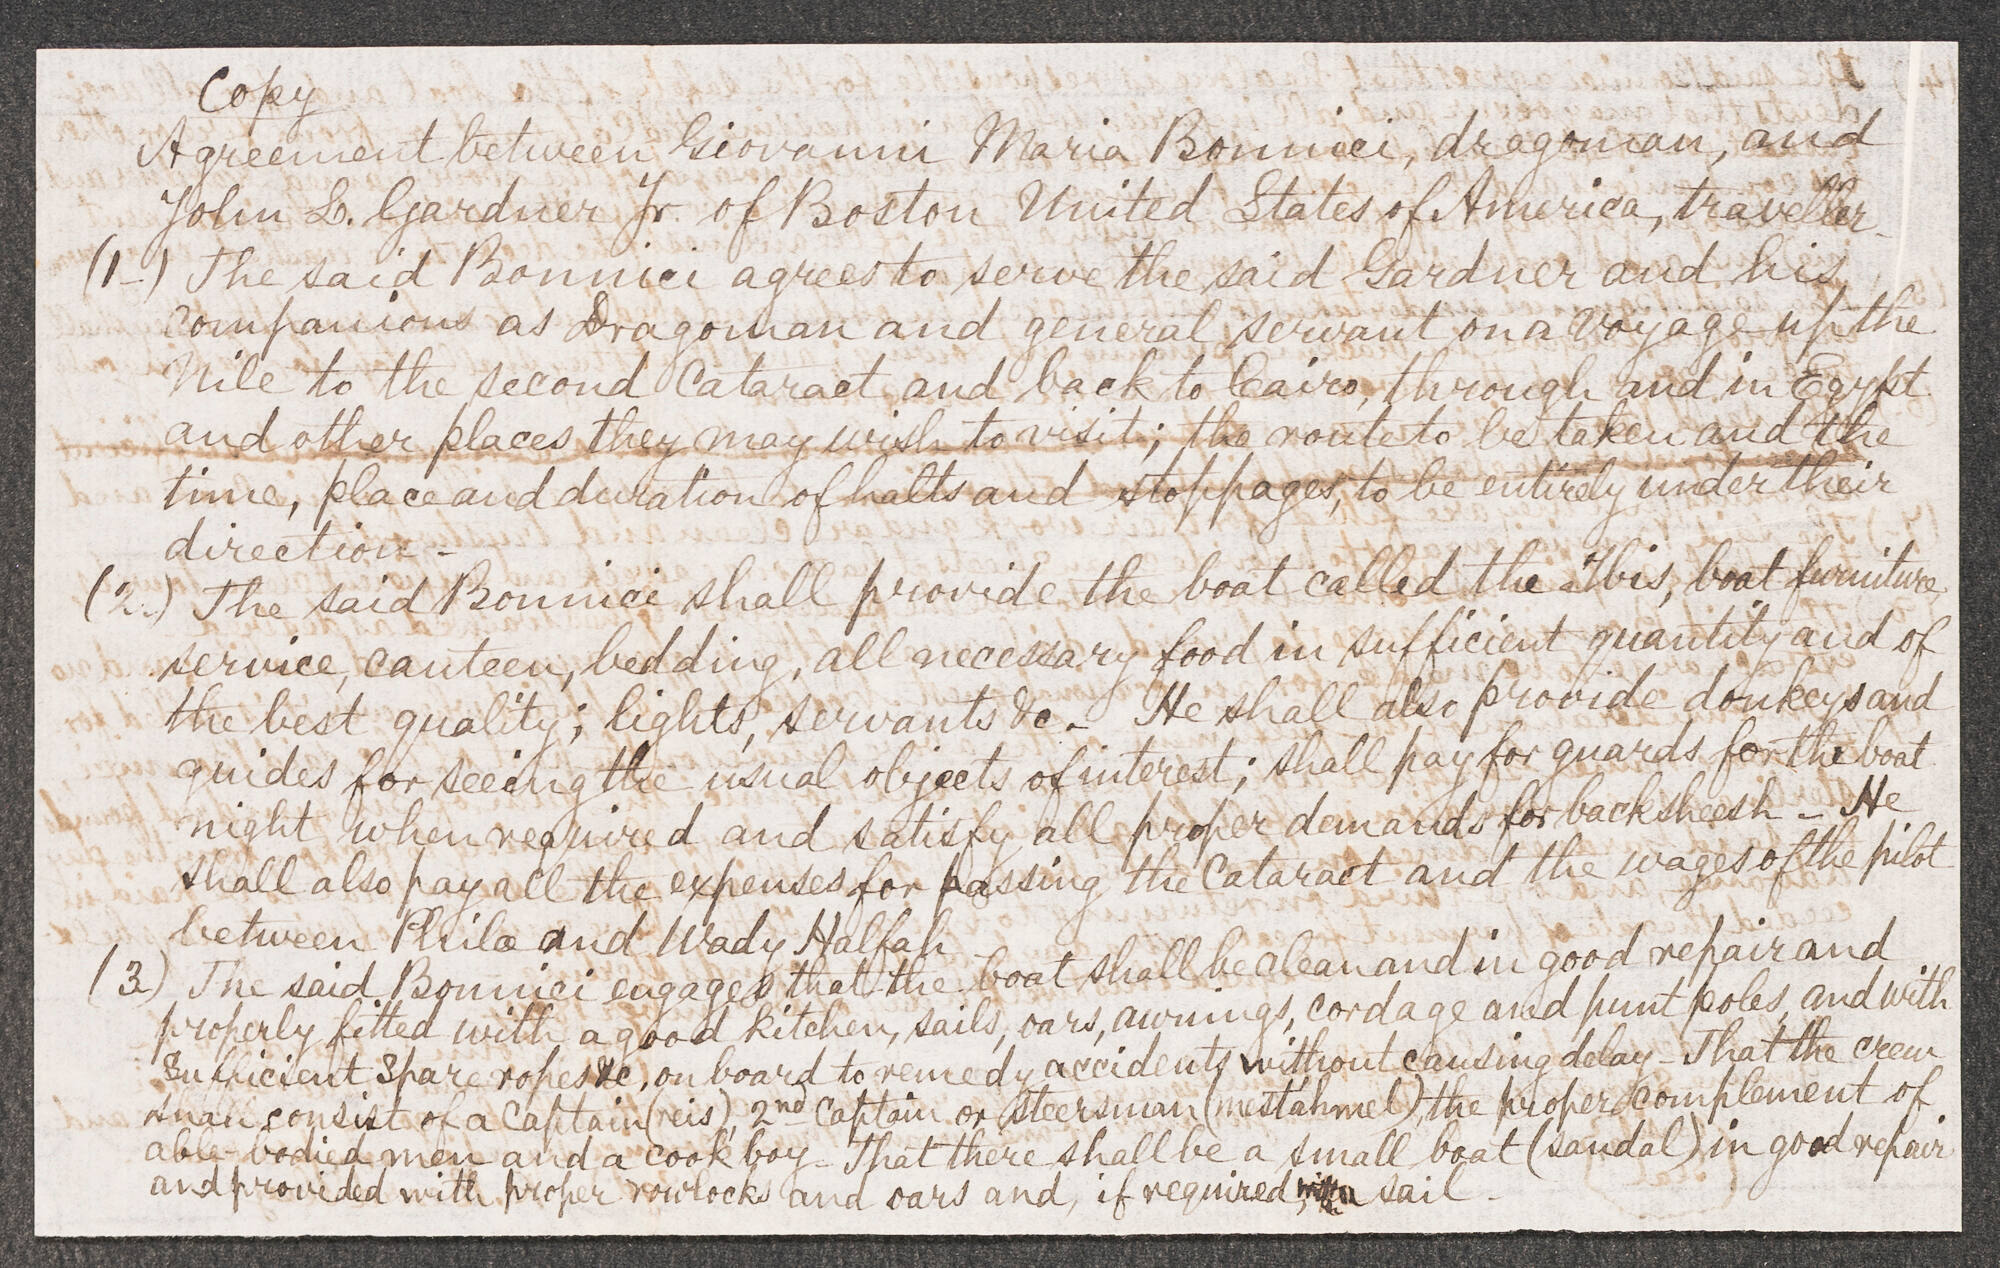 Copy
Agreement between Giovanni Maria Bonnici, dragoman, and
John L. Gardner Jr. of Boston United States of America, traveller.
(1.) The said Bonnici agrees to serve the said Gardner and his
companions as Dragoman and general servant on a voyage up the
Nile to the second Cataract and back to Cairo, through and in Egypt
and other places they may wish to visit; the route to be taken and the
time, place and duration of halts and stoppages, to be entirely under their
direction -
(2.) The said Bonnici shall provide the boat called the Ibis, boat furniture,
service, canteen, bedding, all necessary food in sufficient quantity and of
the best quality; lights, servants &c - He shall also provide donkeys and
guides for seeing the usual objects of interest; shall pay for guards for the boat
night when required and satisfy all proper demands for backsheesh - He
shall also pay all the expenses for passing the Cataract and the wages of the pilot
between Philæ and Wady Halfah
(3) The said Bonnici engages that the boat shall be clean and in good repair and
properly fitted with a good kitchen, sails, oars, awnings, cordage and punt poles, and with
Sufficient Spare ropes &c, on board to remedy accidents without causing delay - That the crew
shall consist of a Captain (reis), 2nd Captain or steersman (mestahmel), the proper complement of
able-bodied men and a cook boy - That there shall be a small boat (sandal) in good repair
and provided with proper rowlocks and oars and, if required, with a sail -